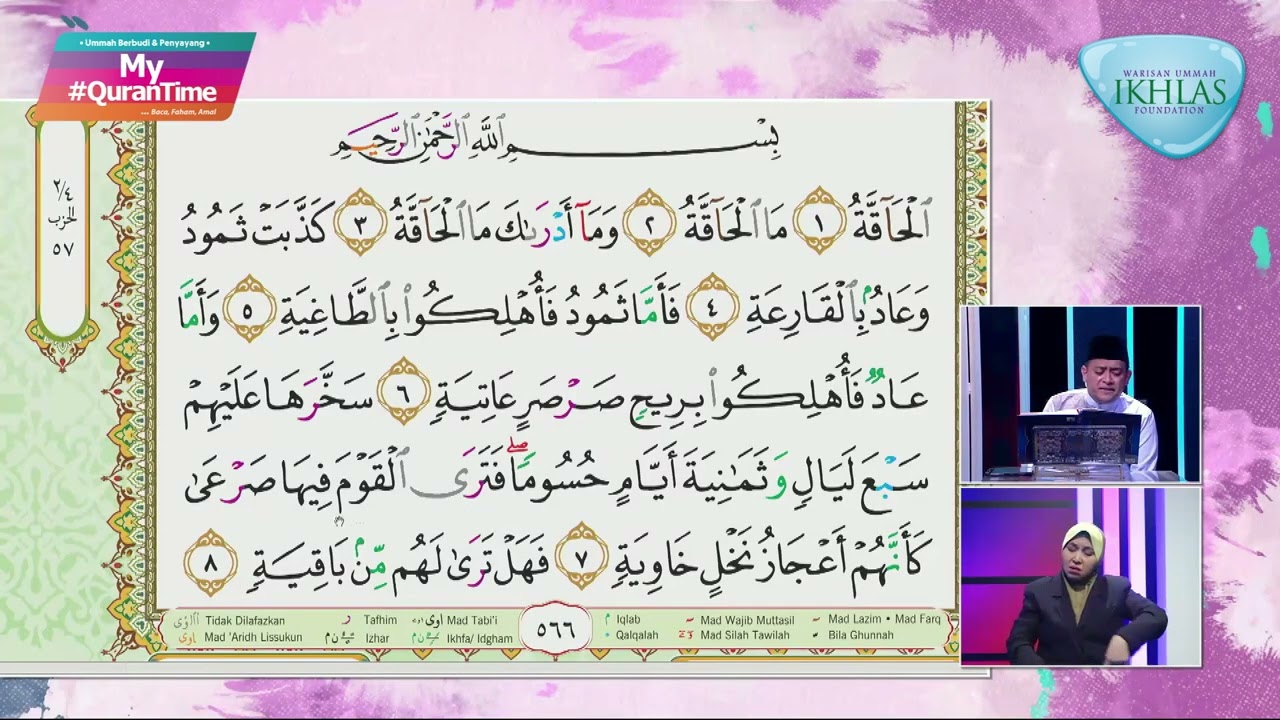 • Ummah Berbudi & Penyayang •
My
#QuranTime
... Baca, Faham, Amal
WARISAN UMMAH
IKHLAS
FOUNDATION
٢/٤
الحزب
٥٧
بِسْمِ ٱللَّهِ ٱلرَّحْمَٰنِ ٱلرَّحِيمِ
ٱلْحَآقَّةُ ١ مَا ٱلْحَآقَّةُ ٢ وَمَآ أَدْرَىٰكَ مَا ٱلْحَآقَّةُ ٣ كَذَّبَتْ ثَمُودُ
وَعَادُۢ بِٱلْقَارِعَةِ ٤ فَأَمَّا ثَمُودُ فَأُهْلِكُوا۟ بِٱلطَّاغِيَةِ ٥ وَأَمَّا
عَادٌ فَأُهْلِكُوا۟ بِرِيحٍ صَرْصَرٍ عَاتِيَةٍ ٦ سَخَّرَهَا عَلَيْهِمْ
سَبْعَ لَيَالٍ وَثَمَٰنِيَةَ أَيَّامٍ حُسُومًا ۖ فَتَرَى ٱلْقَوْمَ فِيهَا صَرْعَىٰ
كَأَنَّهُمْ أَعْجَازُ نَخْلٍ خَاوِيَةٍ ٧ فَهَلْ تَرَىٰ لَهُم مِّنۢ بَاقِيَةٍ ٨
Tidak Dilafazkan Tafhim Mad Tabi'i ٥٦٦ Iqlab Mad Wajib Muttasil Mad Lazim • Mad Farq
Mad 'Aridh Lissukun Izhar Ikhfa/ Idgham Qalqalah Mad Silah Tawilah Bila Ghunnah